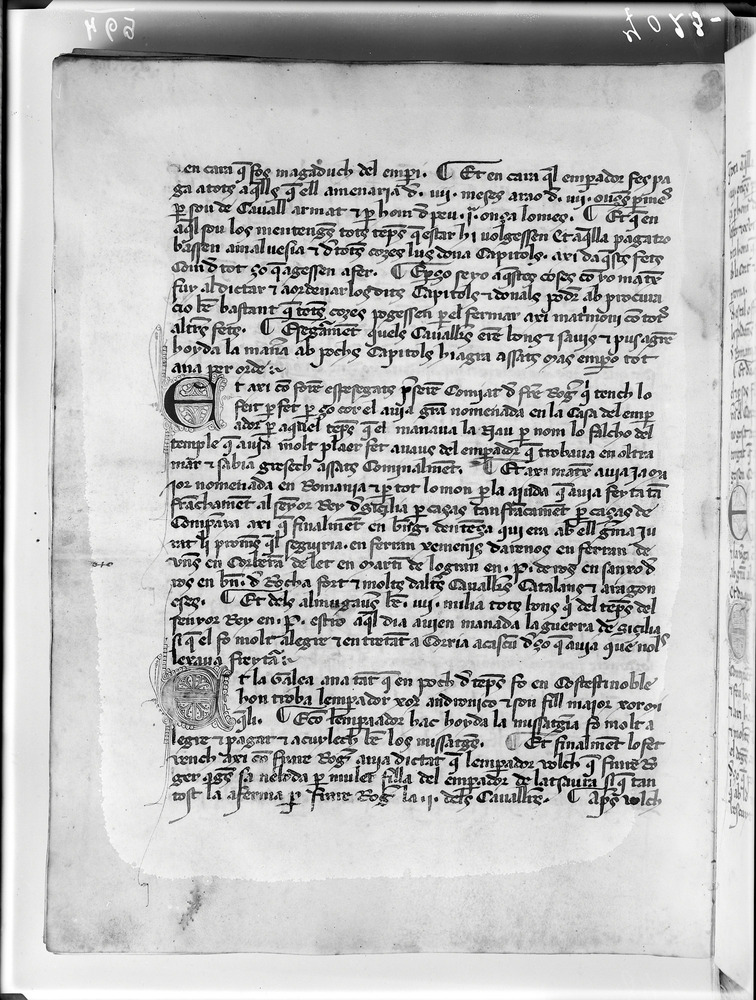 en cara q̄ fos magaduch del emperi. ¶ Et en cara q̄l emperador fes pa
ga a tots aq̄lls q̄ ell amenaria d. iiii. meses a rao d. iiii. onçes p mes
p sou de Cavall armat ⁊ p hom d peu .j. onça lo mes. ¶ Et q̄ en
aq̄l sou los mentengues tots tēps q̄ estar hi volgessen Et aq̄lla paga tro
bassen a malvesia ⁊ d totes coses lus dona Capitols. axi daq̄sts fets
Com d tot ço q̄ agessen a fer. ¶ E p ço se yo aq̄stes coses co yo matex
fuy al dictar ⁊ a ordenar los dits Capitols ⁊ donals poder ab procura
cio be bastant q̄ totes coses pogessen p el fermar axi matrimoni com tots
altres fets. ¶ E segament quels Cavallers eren bons ⁊ savis ⁊ pus agren
hoyda la manera ab pochs Capitols hi agra assats mas empero tot
ana per orde
Et axi co foren espesegats preseren Comiat d frare Roger qui tench lo
feit p fet p ço cor el avia gran nomenada en la Casa del emp
ador p aquel temps que el manava la Nau p nom lo falcho del
temple q̄ avia molt plaer fet a naus del emperador q̄ trobava en oltra
mar ⁊ sabia gresech assats Cominalment. ¶ Et axi matex avia ja ma
jor nomenada en Romania ⁊ p tot lo mon p la ajuda q̄ avia feyta tan
franchament al senyor Rey d Sicilia
Companya axi q̄ finalment en
rat li promes q̄l seguiria. en ferran xemenis darenos en ferran de
en Corberan de let en marti de logran en .P. de ros en sanxo d
ros en bn. d Rocha fort ⁊ molts daltres Cavallers Catalans ⁊ aragon
eses. ¶ Et dels almugavers be .iiii. milia tots bons q̄ del temps del
senyor Rey en .P. estro aq̄l dia avien manada la guerra de Sicilia
si q̄ el fo molt alegre ⁊ en tretant acorria a cascun d ço q̄ avia que nols
lexava freytar
Et la Galea ana tant q̄ en poch d temps fo en Costestinoble
hon troba lemperador xor andronico ⁊ son fill major xor mi
q̄li. ¶ E co lemperador hac hoyda la missatgia fo molt a
legre ⁊ pagat ⁊ acurlech be los missatges. ¶ Et finalment lo fet
vench axi co frare Roger avia dictat q̄ lemperador volch q̄ frare Ro
ger ages sa neboda p muler filla del emperador de latzaura si q̄ tan
tost la aferma p frare Roger la .j. dels Cavallers. ¶ Apres volch